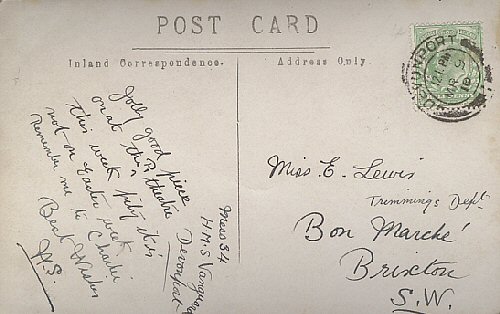 POST CARD
Inland Correspondence.
Address Only.
DEVONPORT
Jolly good piece
on at this theatre
this week pity it is
not on Easter week
Remember me to Charlie
Best Wishes
H.S.
Mess 34
H.M.S Vanguard
Devonport
Miss E. Lewis
Trimmings Dept.
Bon Marché
Brixton
S.W.